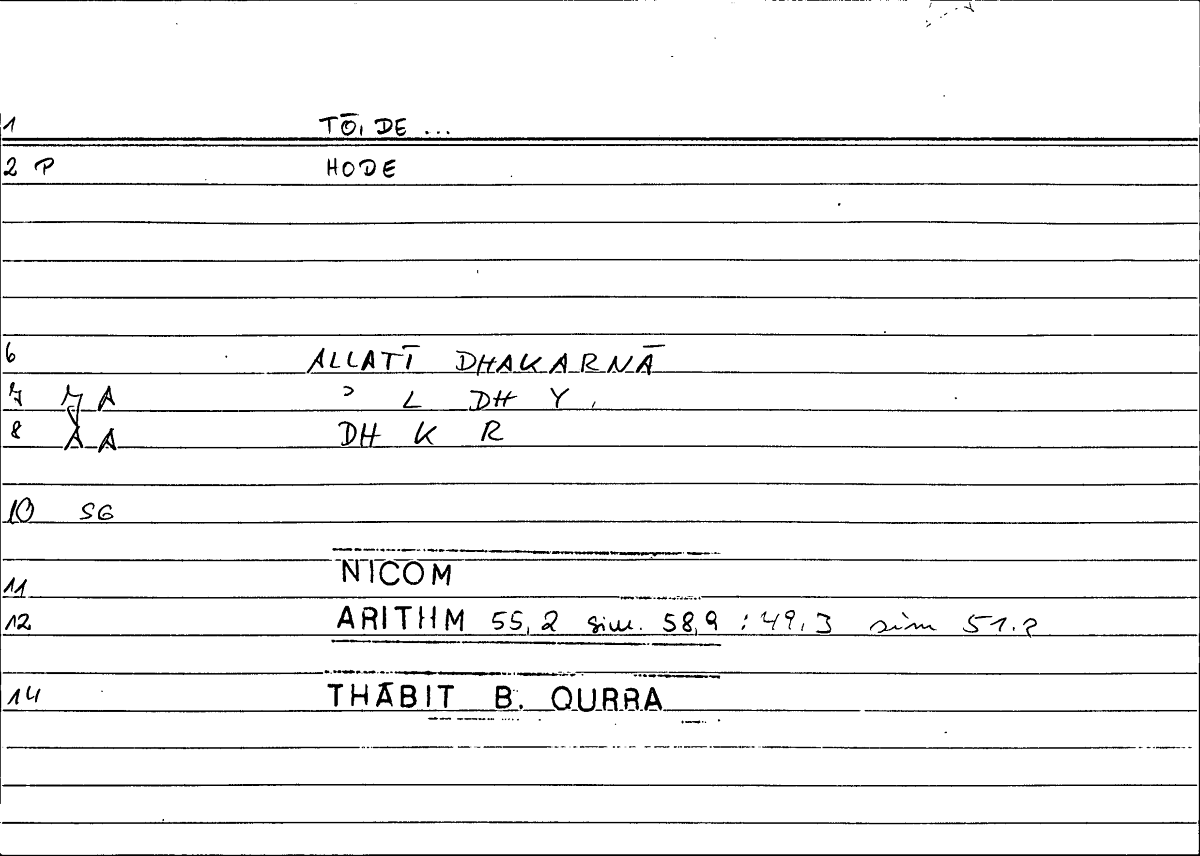 1 TŌI DE ...
2 P HODE
6 ALLATĪ DHAKARNĀ
7 A ʾ L DH Y
8 A A DH K R
10 SG
11 NICOM
12 ARITHM 55,2 sim. 58,9 : 49,3 sim 51.2
14 THĀBIT B. QURRA